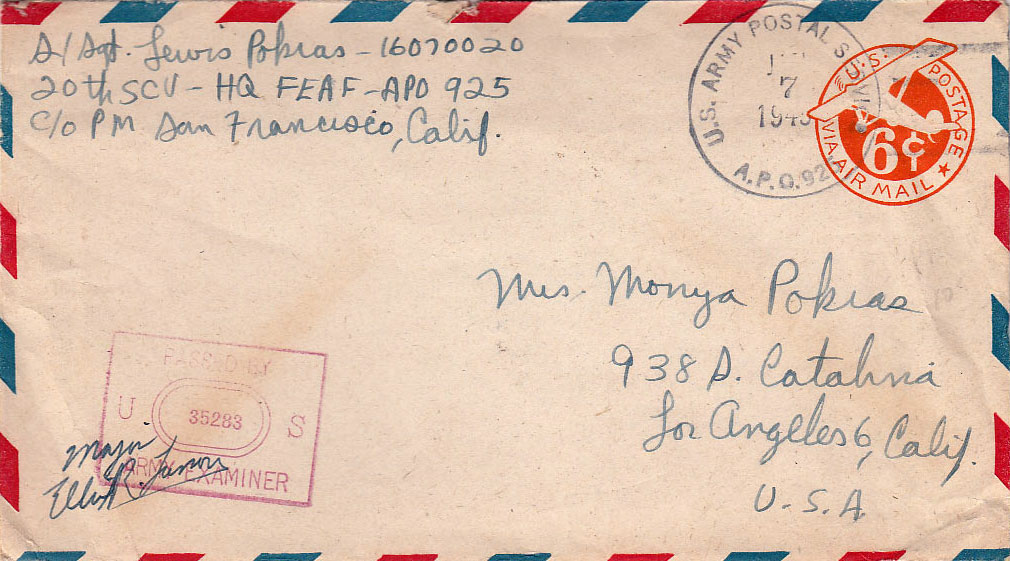 S/Sgt. Lewis Pokras - 16070020
20th SCU - HQ FEAF - APO 925
C/o PM San Francisco, Calif.
U.S. ARMY POSTAL S
7
194
A.P.O. 92
U.S. POSTAGE
6¢
VIA AIR MAIL
Mrs. Monya Pokras
938 S. Catalina
Los Angeles 6, Calif.
U.S.A.
PASSED BY
U 35283 S
ARMY EXAMINER
Major